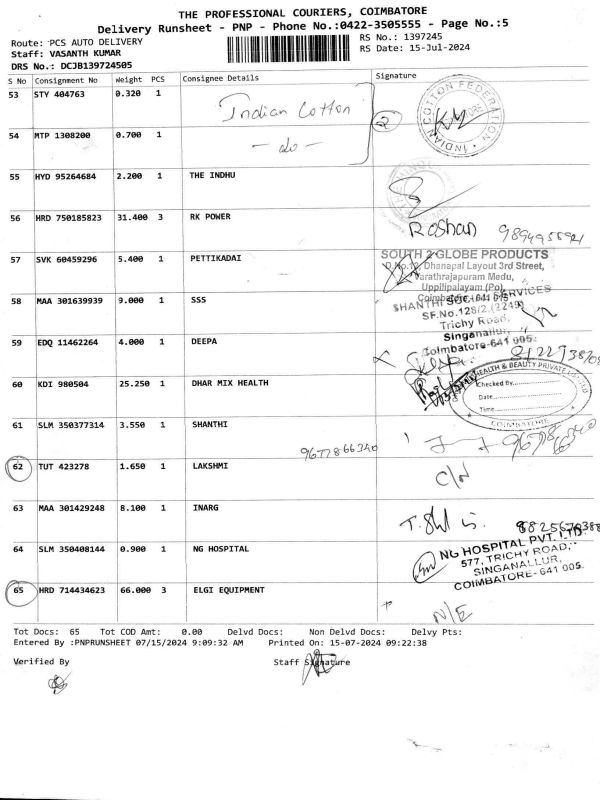 THE PROFESSIONAL COURIERS, COIMBATORE
Delivery Runsheet - PNP - Phone No.:0422-3505555 - Page No.:5
Route: PCS AUTO DELIVERY
RS No.: 1397245
Staff: VASANTH KUMAR
RS Date: 15-Jul-2024
DRS No.: DCJB139724505
S No Consignment No Weight PCS Consignee Details Signature
53 STY 404763 0.320 1 Indian Cotton
54 MTP 1308200 0.700 1 - do -
2
INDIAN COTTON FEDERATION
55 HYD 95264684 2.200 1 THE INDHU
56 HRD 750185823 31.400 3 RK POWER
Roshan
57 SVK 60459296 5.400 1 PETTIKADAI
SOUTH 2 GLOBE PRODUCTS
Dhanapal Layout 3rd Street,
Varathrajapuram Medu,
Uppilipalayam (Po),
58 MAA 301639939 9.000 1 SSS
SHANTHI SOCIAL SERVICES
SF.No.128/2,(2249)
Trichy Road,
Singanallur,
Coimbatore-641 005.
59 EDQ 11462264 4.000 1 DEEPA
60 KDI 980504 25.250 1 DHAR MIX HEALTH
HEALTH & BEAUTY PRIVATE LIMITED
Checked By
Date
Time
COIMBATORE
61 SLM 350377314 3.550 1 SHANTHI
9677866340
62 TUT 423278 1.650 1 LAKSHMI
C/N
63 MAA 301429248 8.100 1 INARG
64 SLM 350408144 0.900 1 NG HOSPITAL
NG HOSPITAL PVT. LTD.
577, TRICHY ROAD,
SINGANALLUR,
COIMBATORE-641 005.
65 HRD 714434623 66.000 3 ELGI EQUIPMENT
N/E
Tot Docs: 65 Tot COD Amt: 0.00 Delvd Docs: Non Delvd Docs: Delvy Pts:
Entered By :PNPRUNSHEET 07/15/2024 9:09:32 AM Printed On: 15-07-2024 09:22:38
Verified By Staff Signature